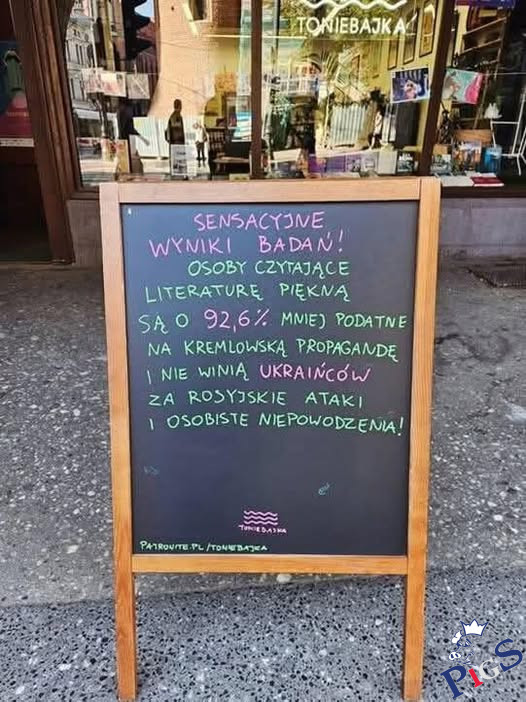 TONIEBAJKA
SENSACYJNE
WYNIKI BADAŃ!
OSOBY CZYTAJĄCE
LITERATURĘ PIĘKNĄ
SĄ O 92,6% MNIEJ PODATNE
NA KREMLOWSKĄ PROPAGANDĘ
I NIE WINIĄ UKRAIŃCÓW
ZA ROSYJSKIE ATAKI
I OSOBISTE NIEPOWODZENIA!
TONIEBAJKA
PATRONITE.PL/TONIEBAJKA
PIGS